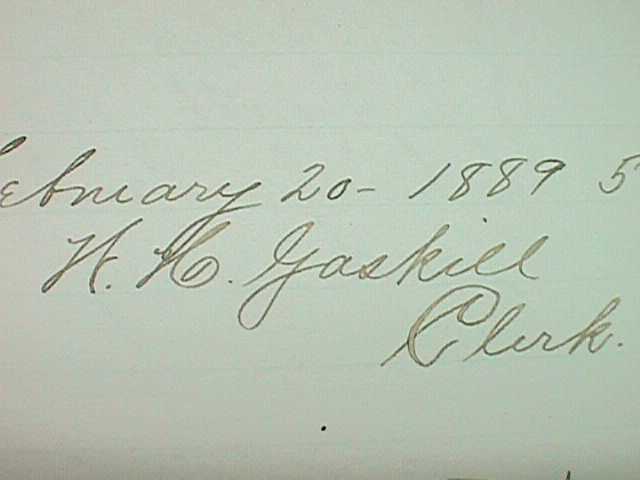 February 20- 1889 5
H. H. Gaskill
Clerk.